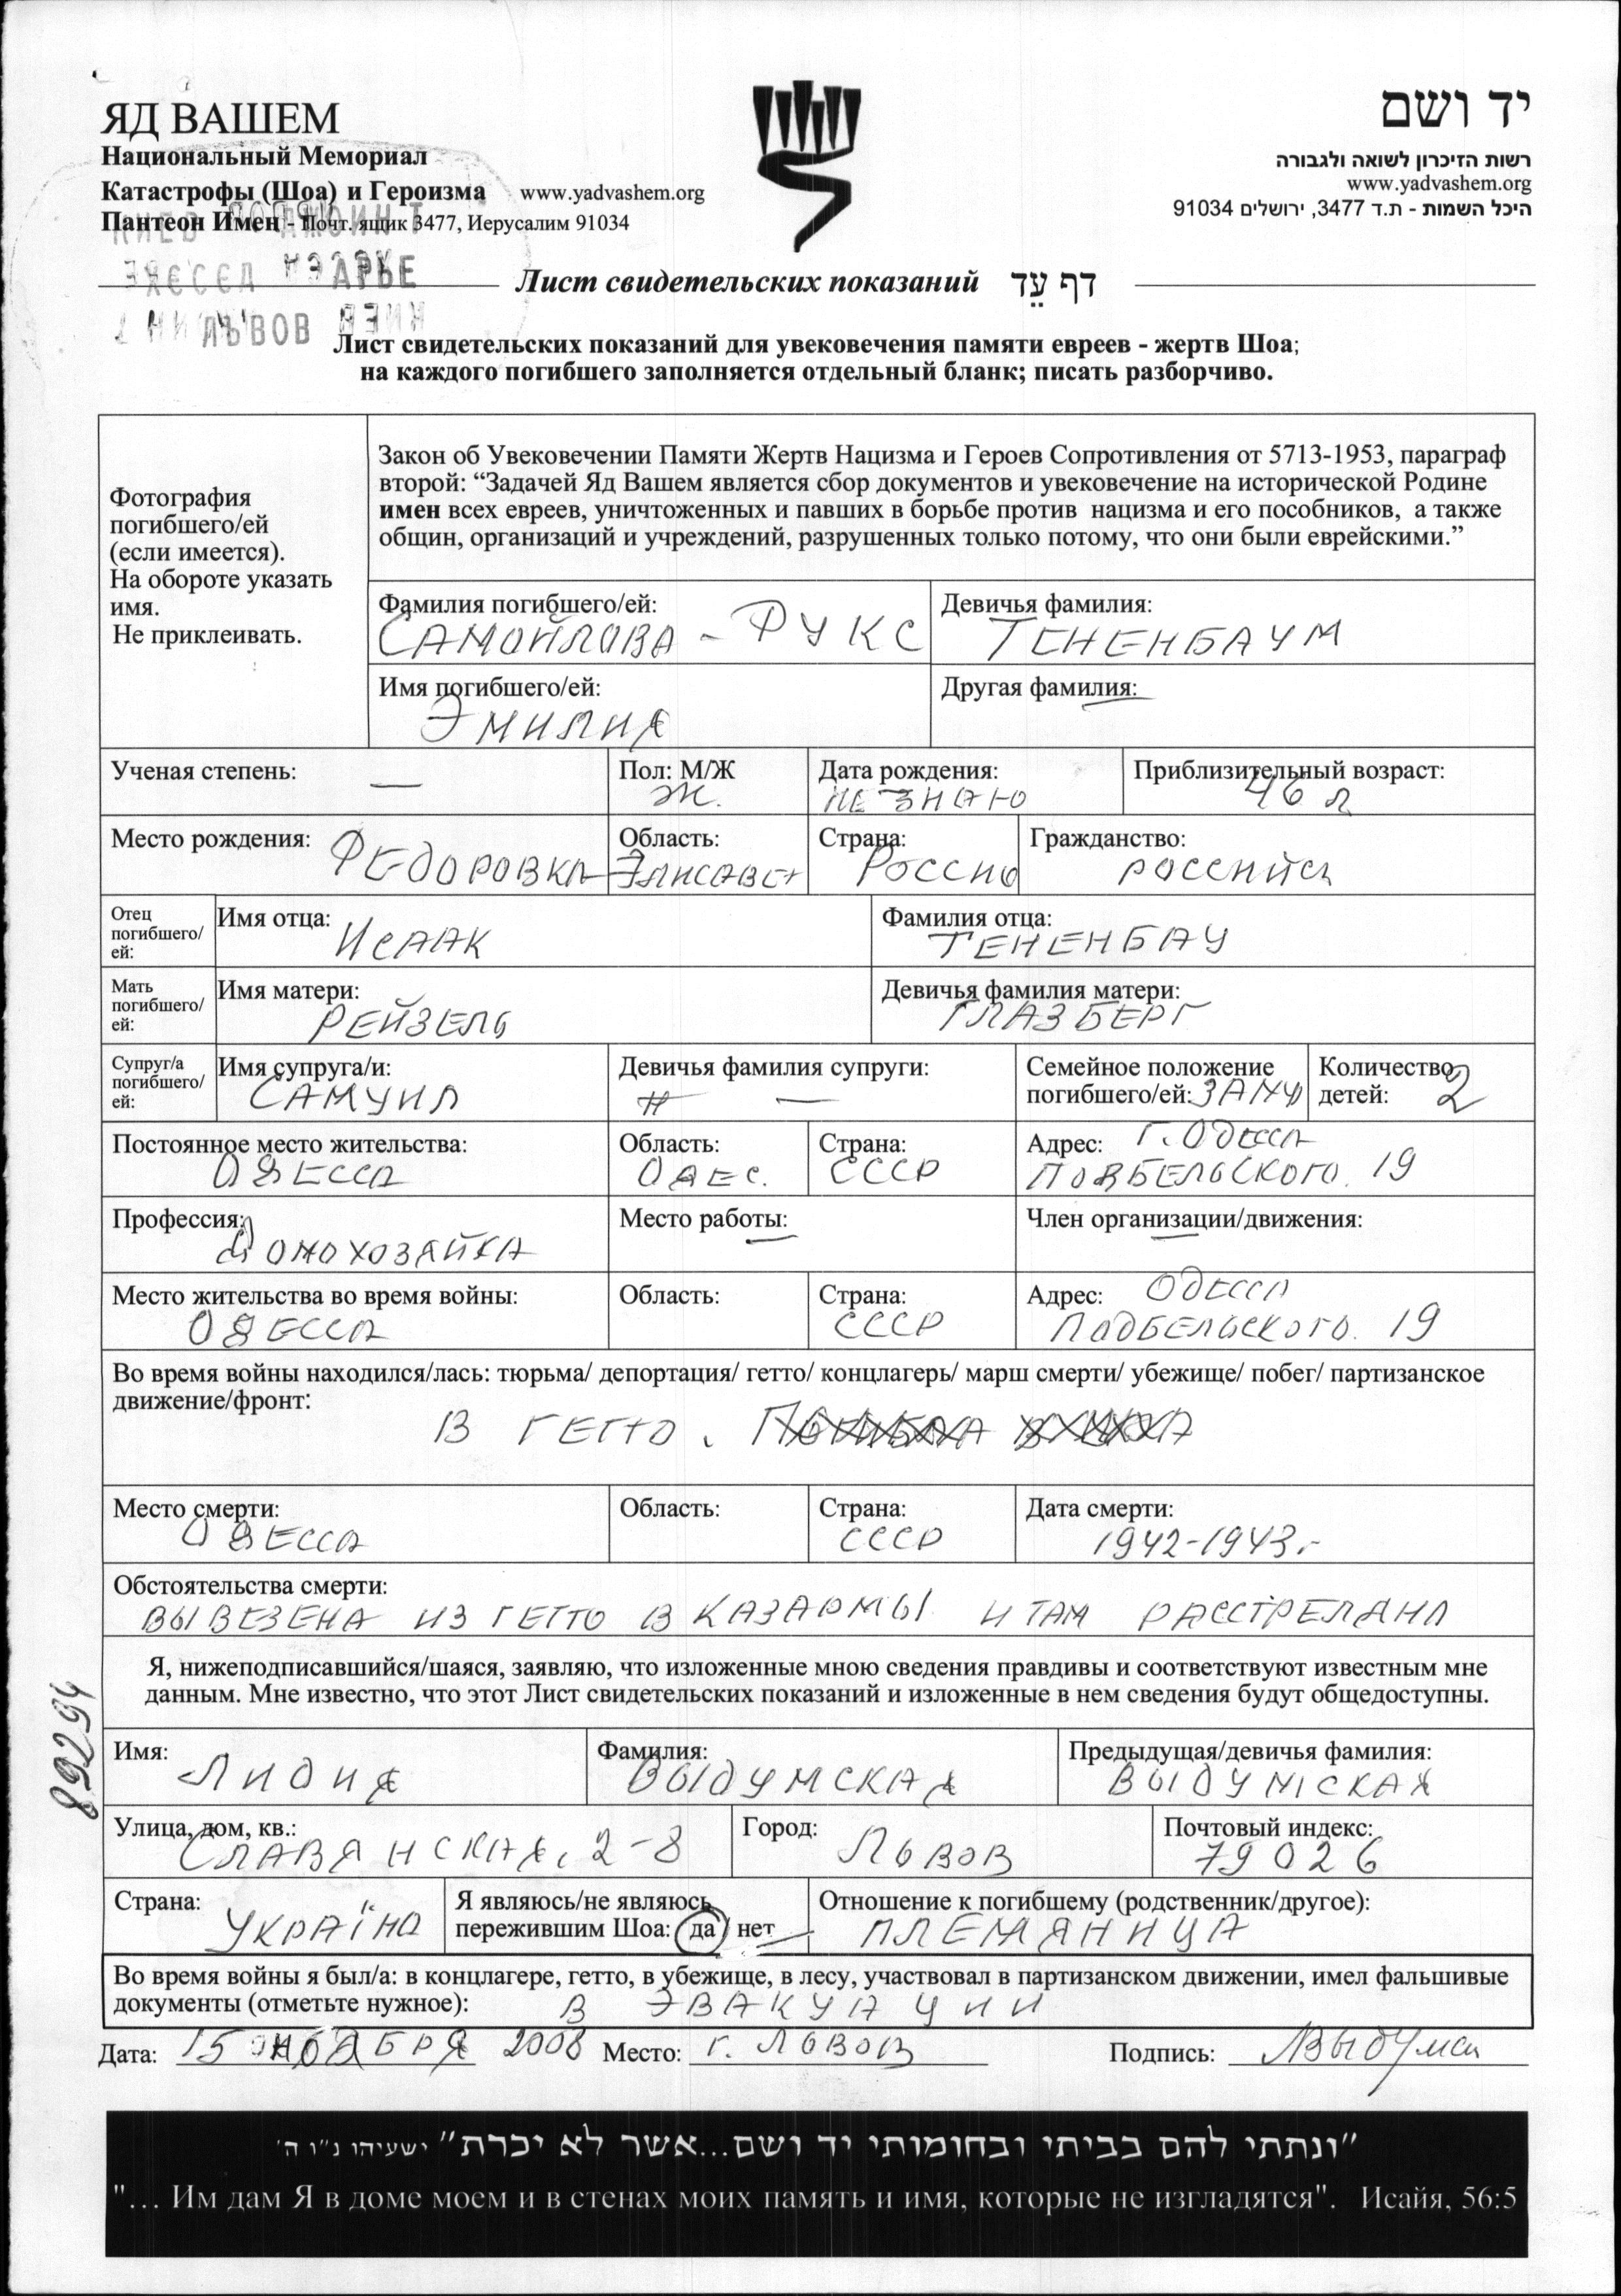 ЯД ВАШЕМ
Национальный Мемориал
Катастрофы (Шоа) и Героизма www.yadvashem.org
Пантеон Имен - Почт. ящик 3477, Иерусалим 91034
יד ושם
רשות הזיכרון לשואה ולגבורה
www.yadvashem.org
היכל השמות - ת.ד 3477, ירושלים 91034
АРЬЕ
ЛЬВОВ
Лист свидетельских показаний דף עֵד
Лист свидетельских показаний для увековечения памяти евреев - жертв Шоа;
на каждого погибшего заполняется отдельный бланк; писать разборчиво.
Фотография
погибшего/ей
(если имеется).
На обороте указать
имя.
Не приклеивать.
Закон об Увековечении Памяти Жертв Нацизма и Героев Сопротивления от 5713-1953, параграф
второй: “Задачей Яд Вашем является сбор документов и увековечение на исторической Родине
имен всех евреев, уничтоженных и павших в борьбе против нацизма и его пособников, а также
общин, организаций и учреждений, разрушенных только потому, что они были еврейскими.”
Фамилия погибшего/ей: Девичья фамилия:
САМОЙЛОВА - ФУКС ТЕНЕНБАУМ
Имя погибшего/ей: Другая фамилия:
ЭМИЛИЯ —
Ученая степень: — Пол: М/Ж Дата рождения: Приблизительный возраст:
Ж. НЕ ЗНАЮ 46 л
Место рождения: ФЕДОРОВКА Область: Страна: Гражданство:
Элисавет Россия
Отец погибшего/ей: Имя отца: Фамилия отца:
ИСААК ТЕНЕНБАУ
Мать погибшего/ей: Имя матери: Девичья фамилия матери:
РЕЙЗЕЛЬ ГЛАЗБЕРГ
Супруг/а погибшего/ей: Имя супруга/и: Девичья фамилия супруги: Семейное положение Количество
САМУИЛ — погибшего/ей: ЗАМУ детей: 2
Постоянное место жительства: Область: Страна: Адрес: г. Одесса
ОДЕССА ОДЕС. СССР ПОДБЕЛЬСКОГО. 19
Профессия: Место работы: — Член организации/движения: —
ДОМОХОЗЯЙКА
Место жительства во время войны: Область: Страна: Адрес: ОДЕССА
ОДЕССА СССР ПОДБЕЛЬСКОГО. 19
Во время войны находился/лась: тюрьма/ депортация/ гетто/ концлагерь/ марш смерти/ убежище/ побег/ партизанское
движение/фронт:
В ГЕТТО.
Место смерти: Область: Страна: Дата смерти:
ОДЕССА СССР 1942-1943.-
Обстоятельства смерти:
ВЫВЕЗЕНА ИЗ ГЕТТО В КАЗАРМЫ И ТАМ РАССТРЕЛЯНА
Я, нижеподписавшийся/шаяся, заявляю, что изложенные мною сведения правдивы и соответствуют известным мне
данным. Мне известно, что этот Лист свидетельских показаний и изложенные в нем сведения будут общедоступны.
89294
Имя: Фамилия: Предыдущая/девичья фамилия:
ЛИДИЯ ВЫДУМСКАЯ ВЫДУМСКАЯ
Улица, дом, кв.: Город: Почтовый индекс:
СЛАВЯНСКАЯ, 2-8 ЛЬВОВ 79026
Страна: Я являюсь/не являюсь Отношение к погибшему (родственник/другое):
УКРАЇНА пережившим Шоа: да / нет ПЛЕМЯННИЦА
Во время войны я был/а: в концлагере, гетто, в убежище, в лесу, участвовал в партизанском движении, имел фальшивые
документы (отметьте нужное): В ЭВАКУАЦИИ
Дата: 15 НОЯБРЯ 2008 Место: г. ЛЬВОВ Подпись:
"ונתתי להם בביתי ובחומותי יד ושם...אשר לא יכרת" ישעיהו נ"ו ה'
"... Им дам Я в доме моем и в стенах моих память и имя, которые не изгладятся". Исайя, 56:5